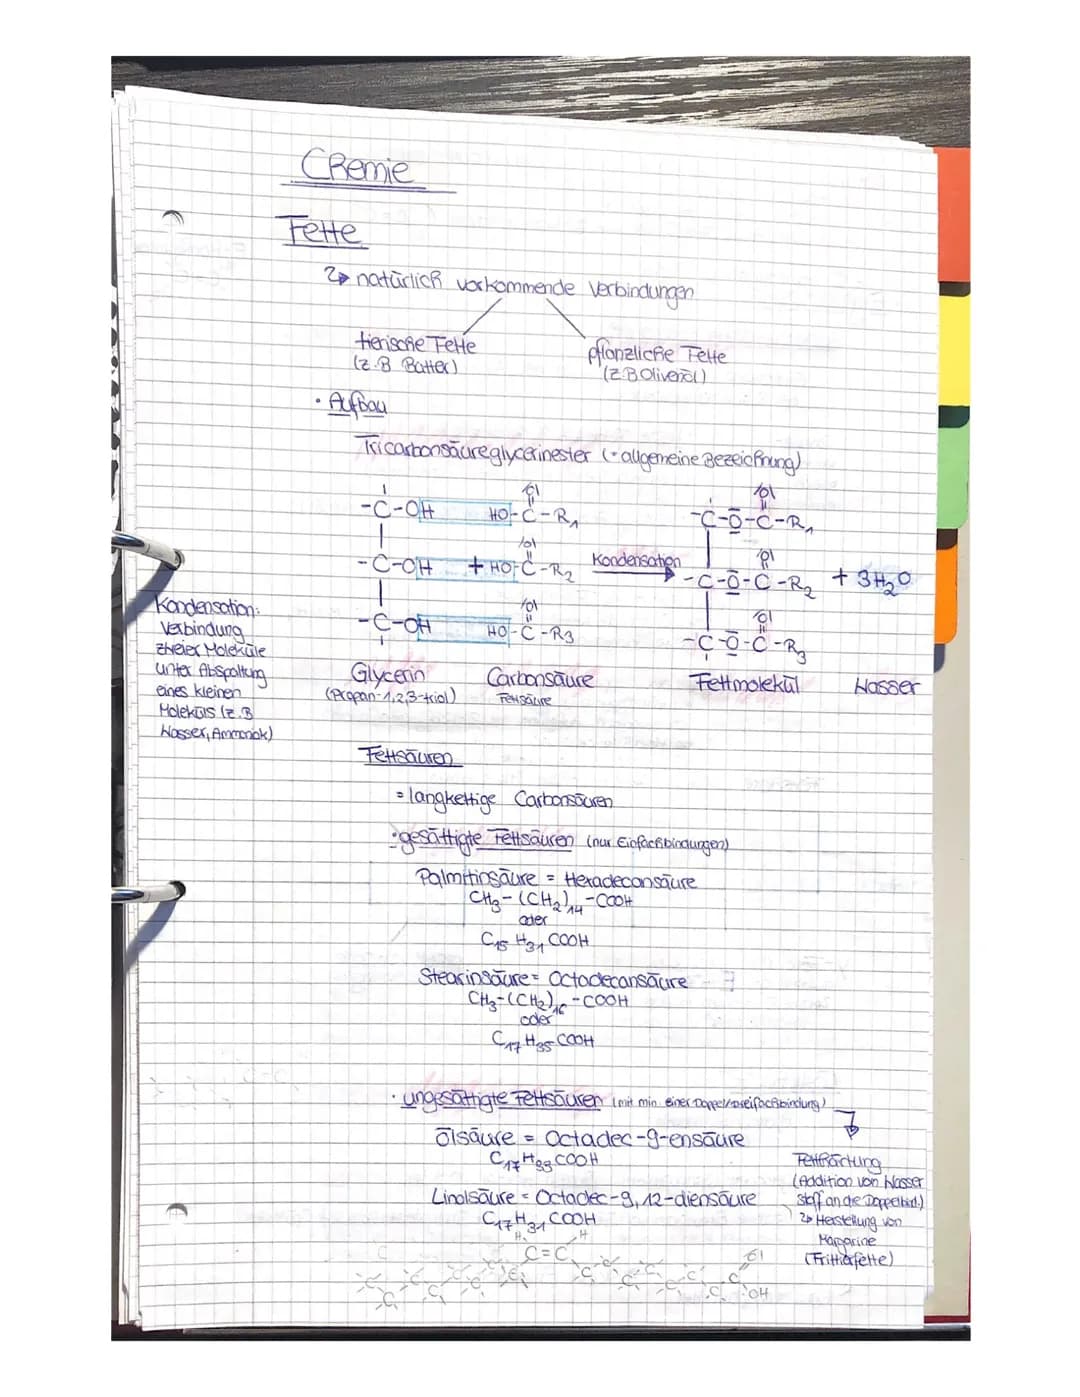 Chemie
Fette
↳ natürlich vorkommende Verbindungen
tierische Fette
(z.B Butter)
pflanzliche Fette
(z.B Olivenöl)
• Aufbau
Tricarbonsäureglycerinester (= allgemeine Bezeichnung)
-C-OH HO-C-R₁ -C-O-C-R₁
-C-OH + HO-C-R₂ Kondensation → -C-O-C-R₂ + 3H₂O
-C-OH HO-C-R₃ -C-O-C-R₃
Glycerin Carbonsäure Fettmolekül Wasser
(Propan-1,2,3-triol) Fettsäure
Kondensation:
Verbindung
zweier Moleküle
unter Abspaltung
eines kleinen
Moleküls (z.B
Wasser, Ammoniak)
Fettsäuren
= langkettige Carbonsäuren
• gesättigte Fettsäuren (nur Einfachbindungen)
Palmitinsäure = Hexadecansäure
CH₃-(CH₂)₁₄-COOH
oder
C₁₅H₃₁COOH
Stearinsäure = Octadecansäure
CH₃-(CH₂)₁₆-COOH
oder
C₁₇H₃₅COOH
• ungesättigte Fettsäuren (mit min. einer Doppel/Dreifachbindung)
Ölsäure = Octadec-9-ensäure
C₁₇H₃₃COOH
Linolsäure = Octadec-9,12-diensäure
C₁₇H₃₁COOH
Fetthärtung
(Addition von Wasser
stoff an die Doppelbind.)
↳ Herstellung von
Margarine
(Frittierfette)
H H
C=C
OH